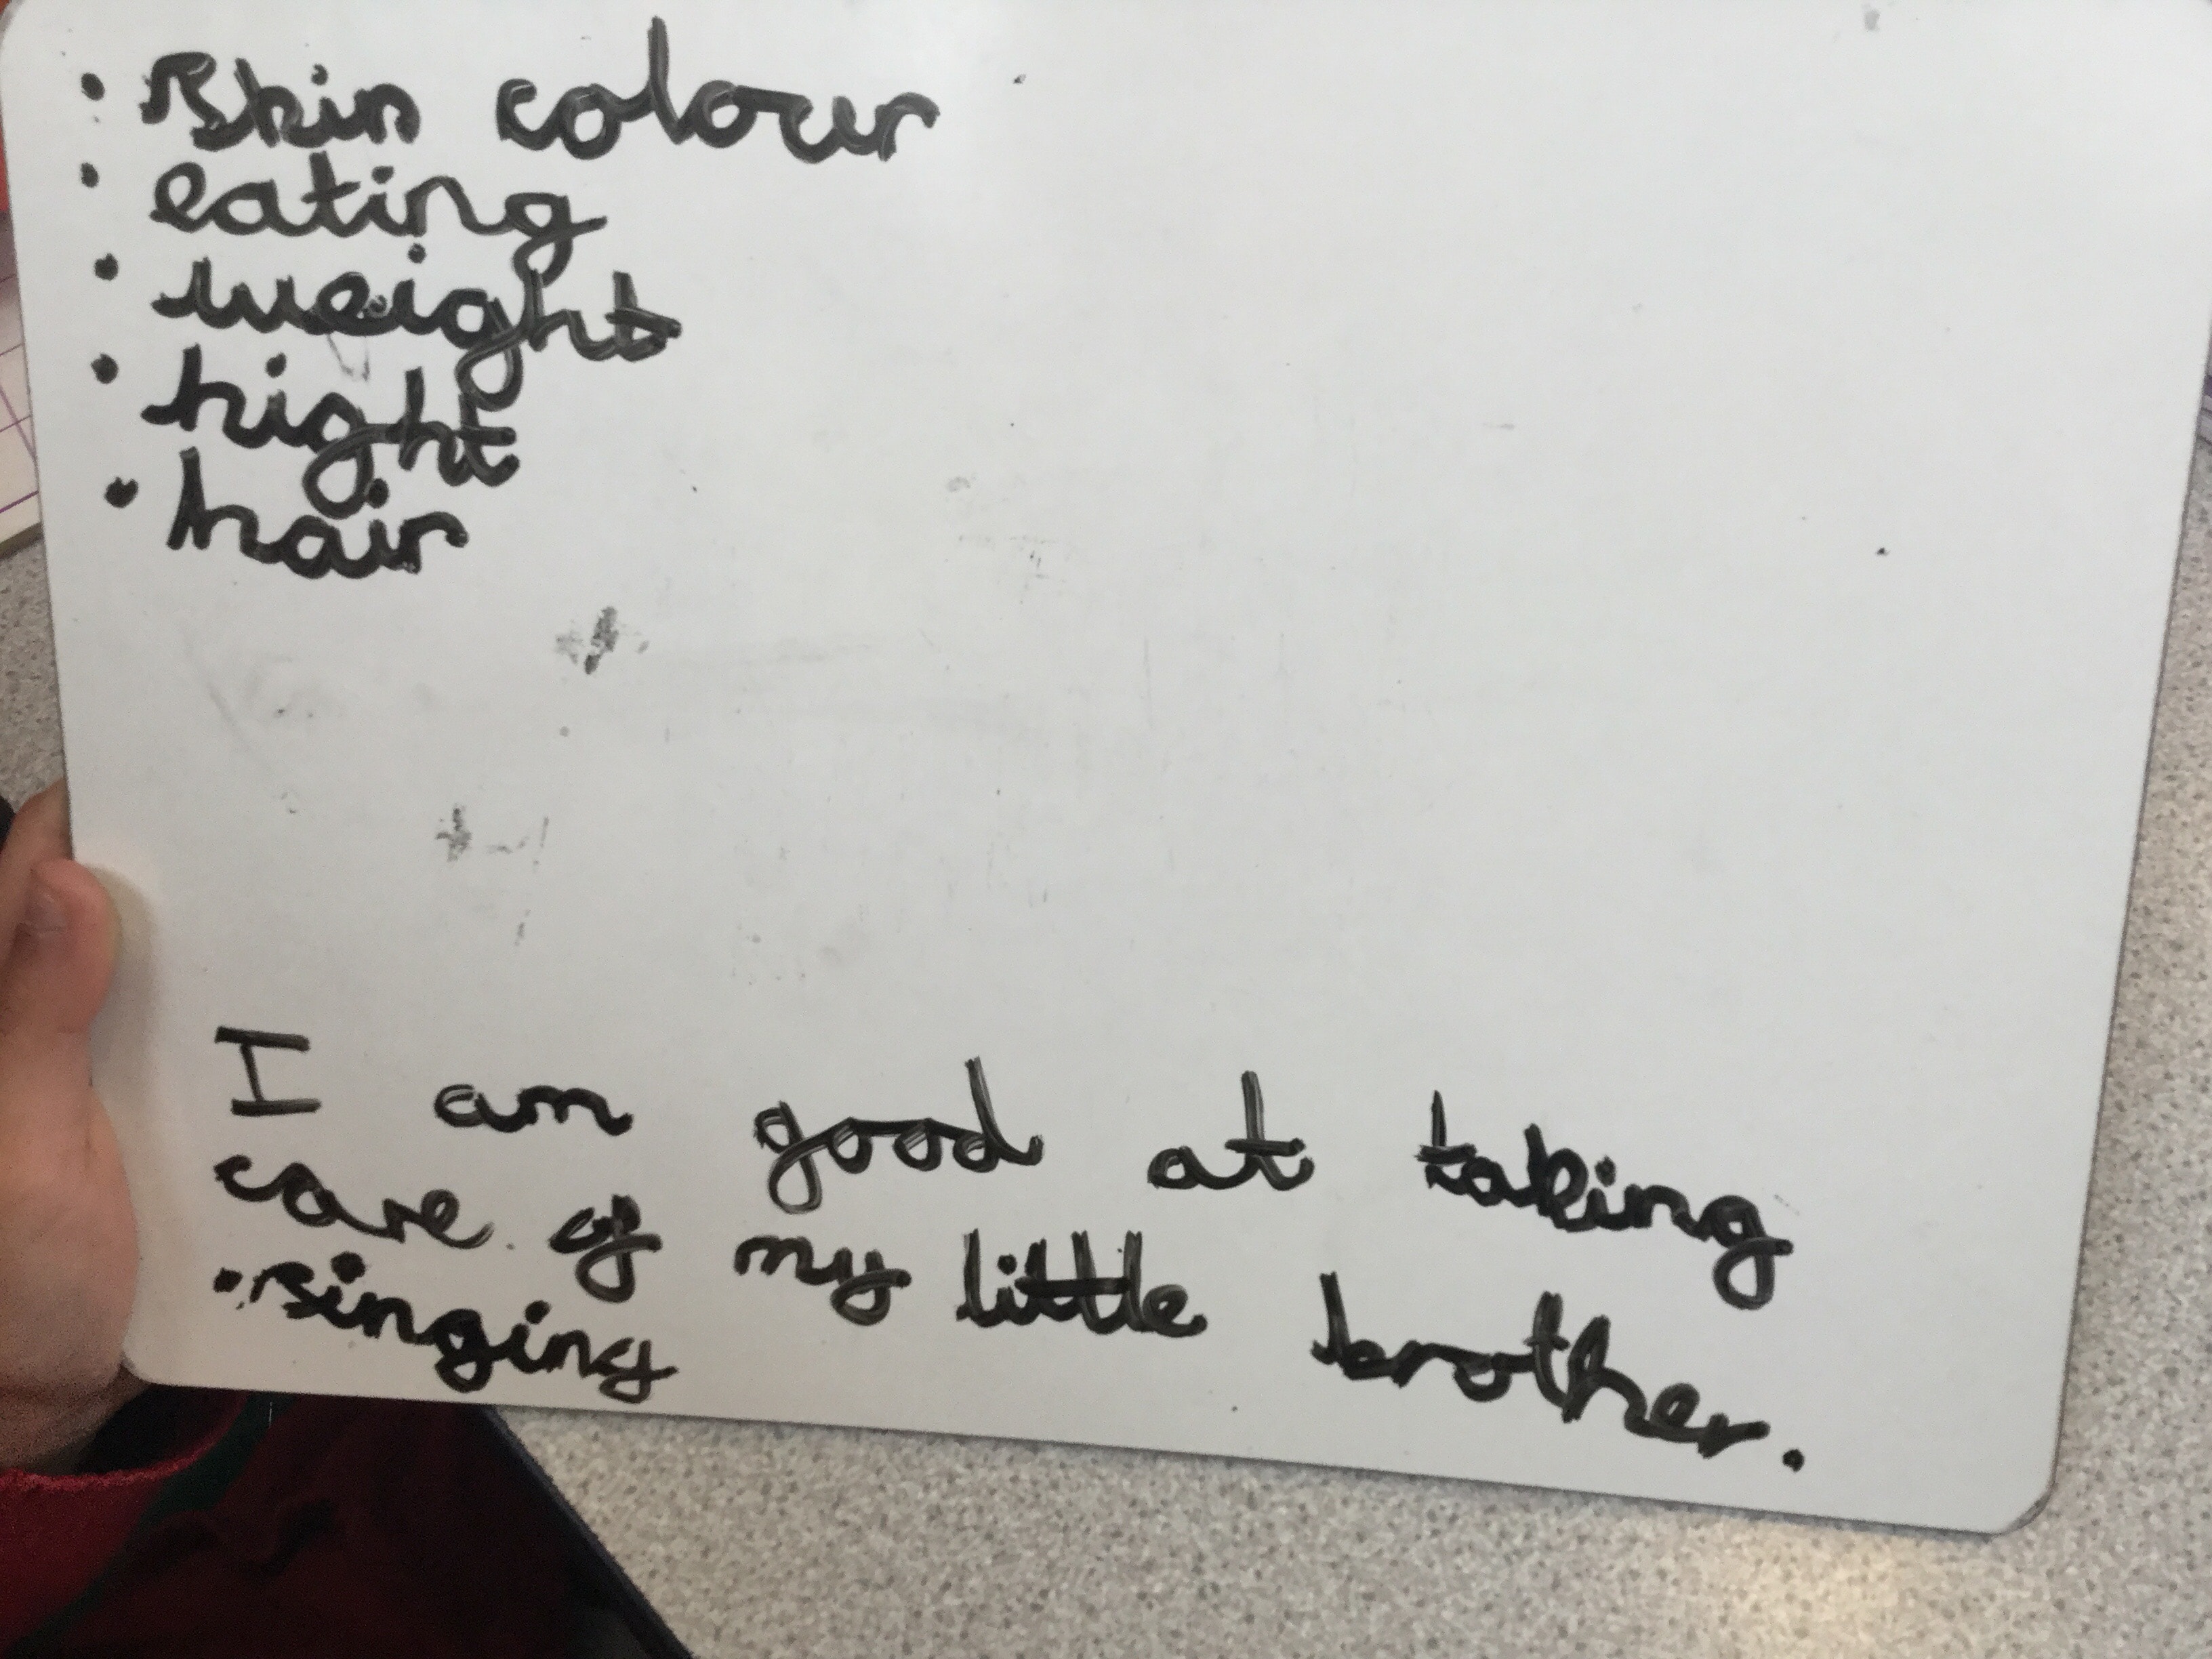 • skin colour
• eating
• weight
• hight
• hair
I am good at taking
care of my little brother.
• singing